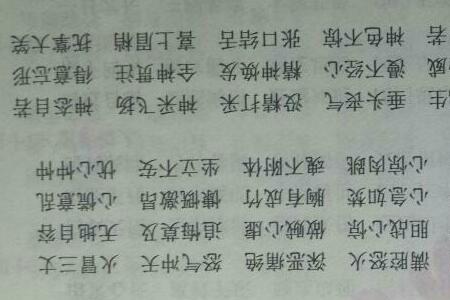 满腔怒火 深恶痛绝 怒气冲天 火冒三丈
胆战心惊 做贼心虚 追悔莫及 无地自容
心急如焚 胸有成竹 慷慨激昂 心慌意乱
心惊肉跳 魂不附体 坐立不安 忧心忡忡
生 垂头丧气 没精打采 神采飞扬 神态自若
威 漫不经心 精神焕发 全神贯注 得意忘形
若 神色不惊 张口结舌 喜上眉梢 抚掌大笑